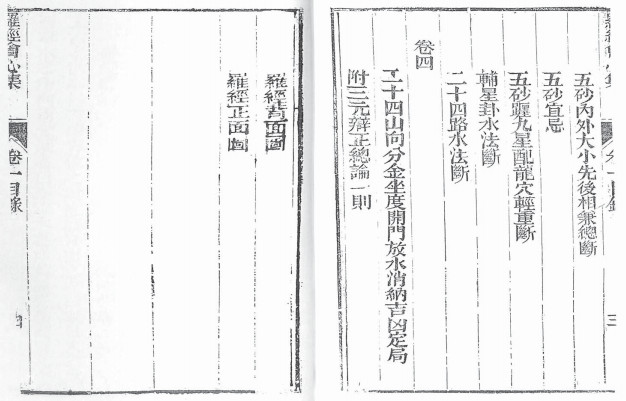 五砂內外大小先後相兼總斷
五砂宜忌
五砂躔九星配龍穴輕重斷
輔星卦水法斷
二十四路水法斷
卷四
二十四山向分金坐度開門放水消納吉凶定局
附三元辯正總論一則
羅經背面圖
羅經正面圖
羅經會心集
卷一目錄